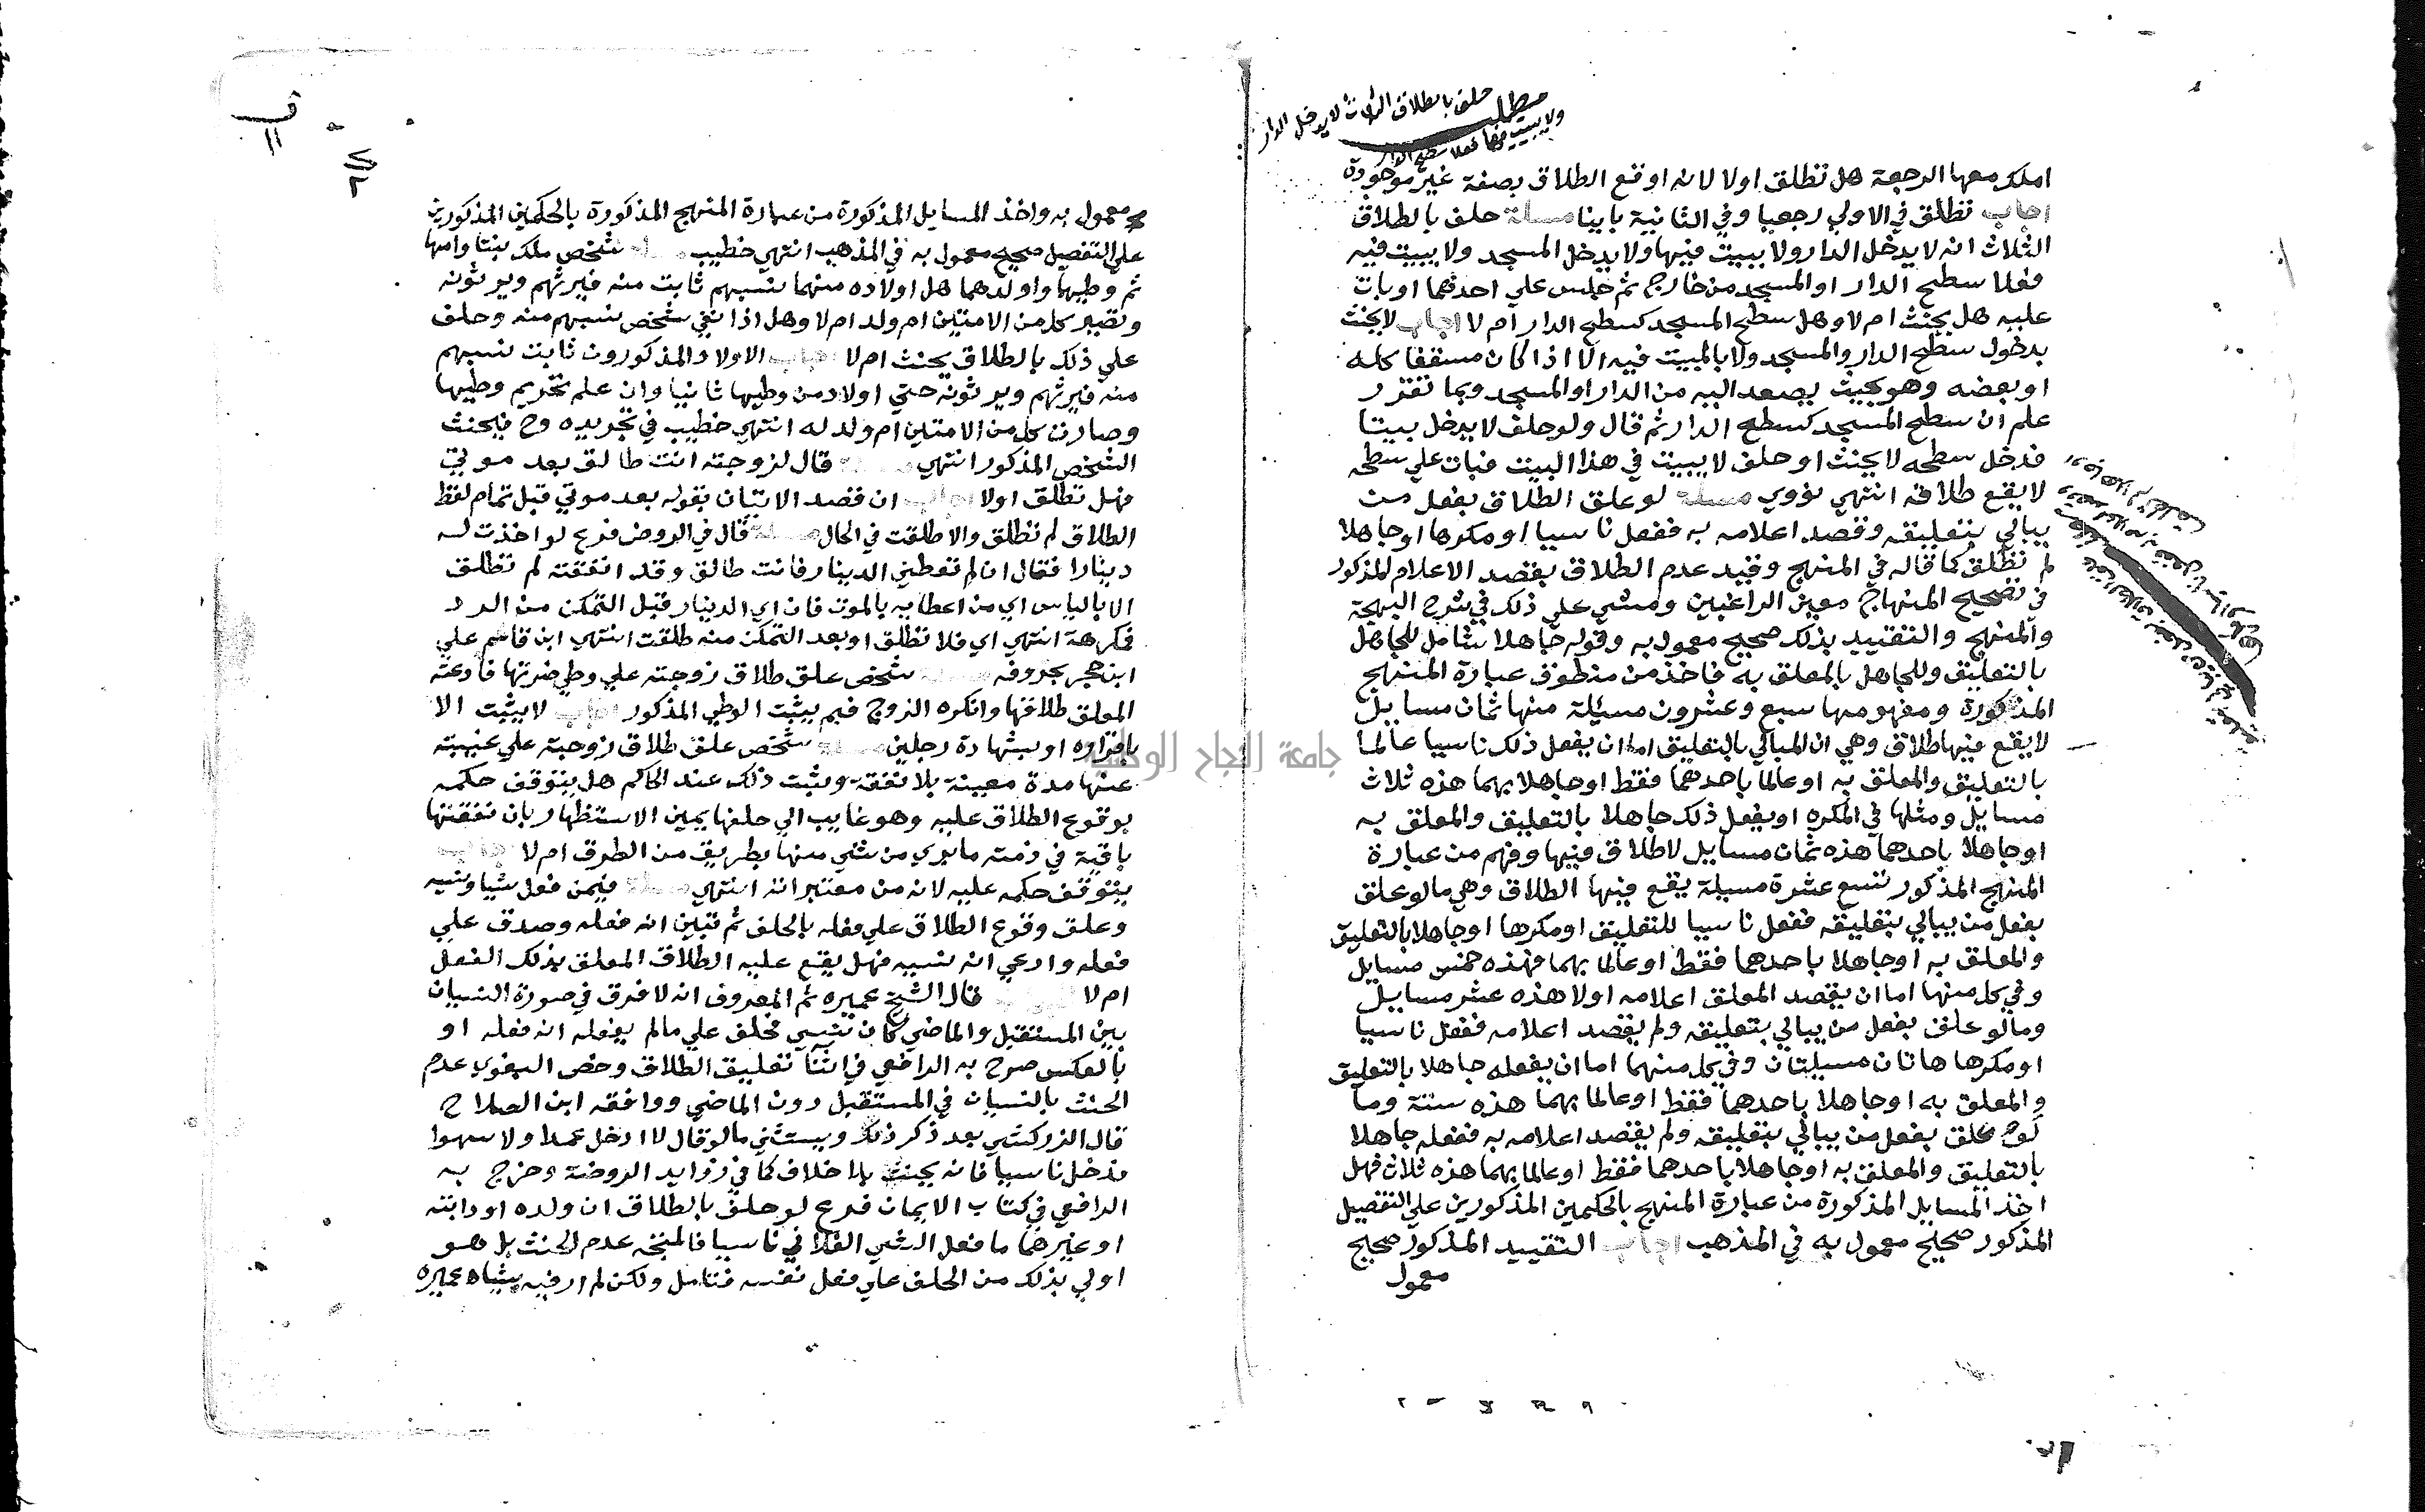 مطلب حلف بالطلاق الثلاث لا يدخل الدار
ولا يبيت فيها فعلا سطح الدار
املك معها الرجعة هل تطلق اولا لانه اوقع الطلاق بصفة غير موجودة
اجاب تطلق في الاولي رجعيا وفي الثانية باينا مسئلة حلف بالطلاق
الثلاث انه لا يدخل الدار ولا يبيت فيها ولا يدخل المسجد ولا يبيت فيه
فعلا سطح الدار او المسجد من خارج ثم جلس علي احدهما او بات
عليه هل يحنث ام لا وهل سطح المسجد كسطح الدار ام لا اجاب لا يحنث
بدخول سطح الدار والمسجد ولا بالمبيت فيه الا اذا كان مسقفا كله
او بعضه وهو بحيث يصعد اليه من الدار او المسجد وبما تقرر
علم ان سطح المسجد كسطح الدار ثم قال ولو حلف لا يدخل بيتا
فدخل سطحه لا يحنث او حلف لا يبيت في هذا البيت فبات علي سطحه
لا يقع طلاقه انتهي نووي مسئلة لو علق الطلاق بفعل من
يبالي بتعليقه وقصد اعلامه به ففعل ناسيا او مكرها او جاهلا
لم تطلق كما قاله في المنهج وقيد عدم الطلاق بقصد الاعلام المذكور
في تصحيح المنهاج معين الراغبين ومشي علي ذلك في شرح البهجة
والمنهج والتقييد بذلك صحيح معمول به وقوله جاهلا شامل للجاهل
بالتعليق وللجاهل بالمعلق به فاخذ من منطوق عبارة المنهج
المذكورة ومفهومها سبع وعشرون مسئلة منها ثمان مسايل
لا يقع فيها طلاق وهي ان المبالي بالتعليق اما ان يفعل ذلك ناسيا عالما
بالتعليق والمعلق به او عالما باحدهما فقط او جاهلا بهما هذه ثلاث
مسايل ومثلها في المكره او يفعل ذلك جاهلا بالتعليق والمعلق به
او جاهلا باحدهما هذه ثمان مسايل لا طلاق فيها وفهم من عبارة
المنهج المذكور تسع عشرة مسيلة يقع فيها الطلاق وهي ما لو علق
بفعل من يبالي بتعليقه ففعل ناسيا للتعليق او مكرها او جاهلا بالتعليق
والمعلق به او جاهلا باحدهما فقط او عالما بهما فهذه خمس مسايل
وفي كل منها اما ان يقصد المعلق اعلامه اولا هذه عشر مسايل
وما لو علق بفعل من يبالي بتعليقه ولم يقصد اعلامه ففعل ناسيا
او مكرها هاتان مسيلتان وفي كل منهما اما ان يفعله جاهلا بالتعليق
والمعلق به او جاهلا باحدهما فقط او عالما بهما هذه ستة وما
لو علق بفعل من يبالي بتعليقه ولم يقصد اعلامه به ففعله جاهلا
بالتعليق والمعلق به او جاهلا باحدهما فقط او عالما بهما هذه ثلاث فهل
اخذ المسايل المذكورة من عبارة المنهج بالحكمين المذكورين علي التفصيل
المذكور صحيح معمول به في المذهب اجاب التقييد المذكور صحيح
معمول
معمول به واخذ المسايل المذكورة من عبارة المنهج المذكورة بالحكمين المذكورين
علي التفصيل صحيح معمول به في المذهب انتهي خطيب شخص ملك بنتا وامها
ثم وطيهما واولدهما هل اولاده منهما نسبهم ثابت منه فيرثهم ويرثونه
وتصير كل من الامتين ام ولد ام لا وهل اذا نفي شخص نسبهم منه وحلف
علي ذلك بالطلاق يحنث ام لا اجاب الاولاد المذكورون ثابت نسبهم
منه فيرثهم ويرثونه حتي اولاد من وطيها ثانيا وان علم تحريم وطيها
وصارت كل من الامتين ام ولد له انتهي خطيب في تجريده وح فيحنث
الشخص المذكور انتهي قال لزوجته انت طالق بعد موتي
فهل تطلق اولا اجاب ان قصد الاتيان بقوله بعد موتي قبل تمام لفظ
الطلاق لم تطلق والا طلقت في الحال مسئلة قال في الروض فرع لو اخذت له
دينارا فقال ان لم تعطيني الدينار فانت طالق وقد انفقته لم تطلق
الا بالياس اي من اعطايه بالموت فان اي الدينار قبل التمكن من الرد
فكرهة انتهي اي فلا تطلق او بعد التمكن منه طلقت انتهي ابن قاسم علي
ابن حجر بحروفه شخص علق طلاق زوجته علي وطي ضرتها فادعته
المعلق طلاقها وانكره الزوج فبم يثبت الوطي المذكور اجاب لا يثبت الا
باقراره او بشهادة رجلين مسئلة شخص علق طلاق زوجته علي غيبته
عنها مدة معينة بلا نفقة وثبت ذلك عند الحاكم هل يتوقف حكمه
بوقوع الطلاق عليه وهو غايب الي حلفها يمين الاستظهار بان نفقتها
باقية في ذمته ما بري من شي منها بطريق من الطرق ام لا
يتوقف حكمه عليه لانه من معتبراته انتهي مسئلة فيمن فعل شيا ونسيه
وعلق وقوع الطلاق علي فعله بالحلف ثم تبين انه فعله وصدق علي
فعله وادعي انه نسيه فهل يقع عليه الطلاق المعلق بذلك الفعل
ام لا قال الشيخ عميره ثم المعروف انه لا فرق في صورة النسيان
بين المستقبل والماضي كان نسي فحلف علي ما لم يفعله انه فعله او
بالعكس صرح به الرافعي في اثنا تعليق الطلاق وخص البغوي عدم
الحنث بالنسيان في المستقبل دون الماضي ووافقه ابن الصلاح
قال الزركشي بعد ذكر ذلك ويستثني ما لو قال لا ادخل عمدا ولا سهوا
فدخل ناسيا فانه يحنث بلا خلاف كما في زوايد الروضة وخرج به
الرافعي في كتاب الايمان فرع لو حلف بالطلاق ان ولده او دابته
او غيرهما ما فعل الشي الفلاني ناسيا فالمتجه عدم الحنث بل هو
اولي بذلك من الحلف علي فعل نفسه فتامل ولكن لم ار فيه شياه عميره
جامعة النجاح الوطنية